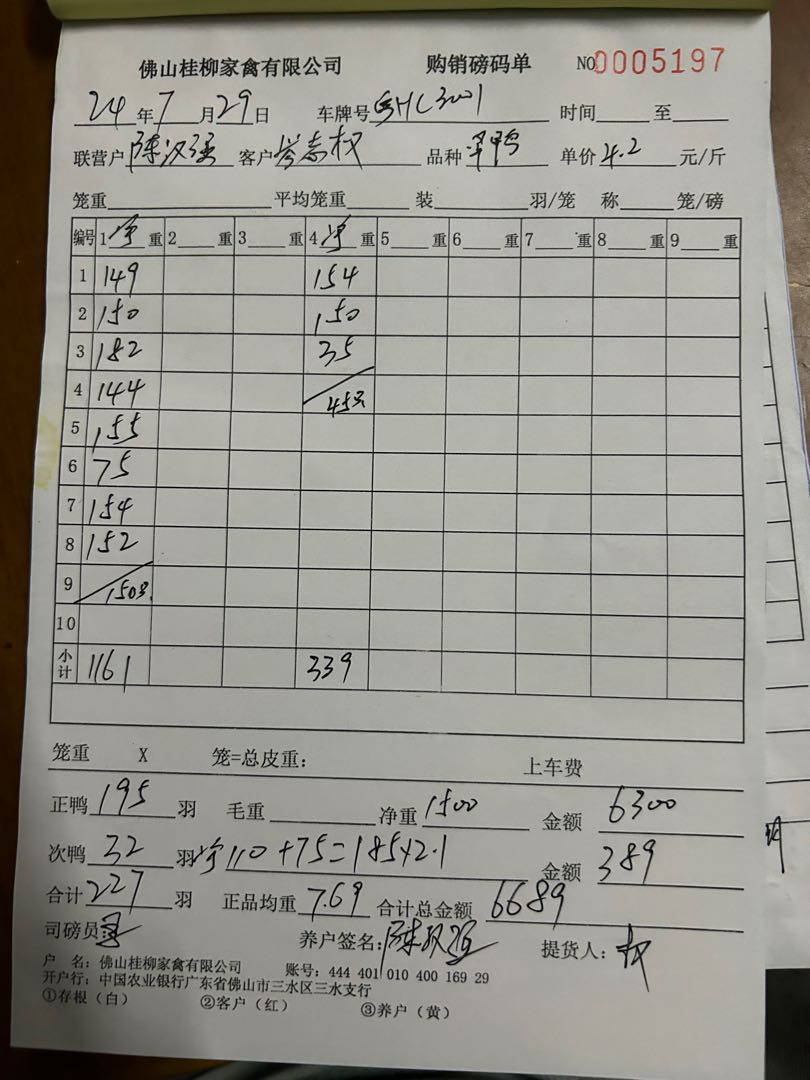 佛山桂柳家禽有限公司 购销磅码单 NO 0005197
24年7月29日 车牌号 HL3001 时间 至
联营户 陈汉强 客户 志权 品种 鸭 单价 4.2 元/斤
笼重 平均笼重 装 羽/笼 称 笼/磅
编号 1 净 重 2 重 3 重 4 净 重 5 重 6 重 7 重 8 重 9 重
1 149 154
2 150 150
3 182 35
4 144 45只
5 155
6 75
7 154
8 152
9 150只
10
小计 1161 339
笼重 X 笼=总皮重: 上车费
正鸭 195 羽 毛重 净重 1500 金额 6300
次鸭 32 羽 净 110+75=185×2.1 金额 389
合计 227 羽 正品均重 7.69 合计总金额 6689
司磅员: 养户签名: 陈汉强 提货人: 权
户 名: 佛山桂柳家禽有限公司 账号: 444 401 010 400 169 29
开户行: 中国农业银行广东省佛山市三水区三水支行
①存根(白) ②客户(红) ③养户(黄)